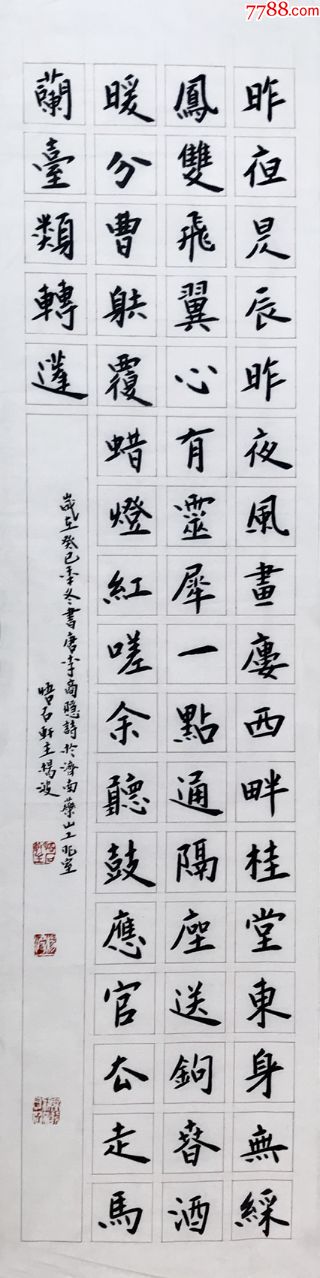 7788.com
昨夜星辰昨夜風畫廔西畔桂堂東身無綵
鳳雙飛翼心有靈犀一點通隔座送鉤春酒
暖分曹躲覆蜡燈紅嗟余聽鼓應官去走馬
蘭臺類轉蓬
歲在癸巳季冬書唐李商隱詩於濟南藥山工作室
晤石軒主楊波